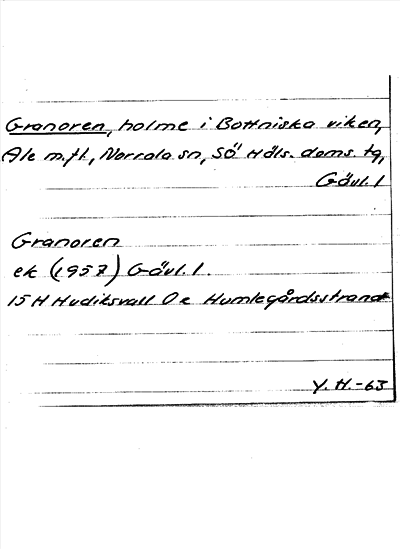 Granoren, holme i Bottniska viken,
Ale m.fl., Norrala sn, Sö Häls. doms. tg,
Gävl. l
Granoren
ek (1957) Gävl. l.
15 H Hudiksvall 0 e Humlegårdsstrand
Y. H. -63